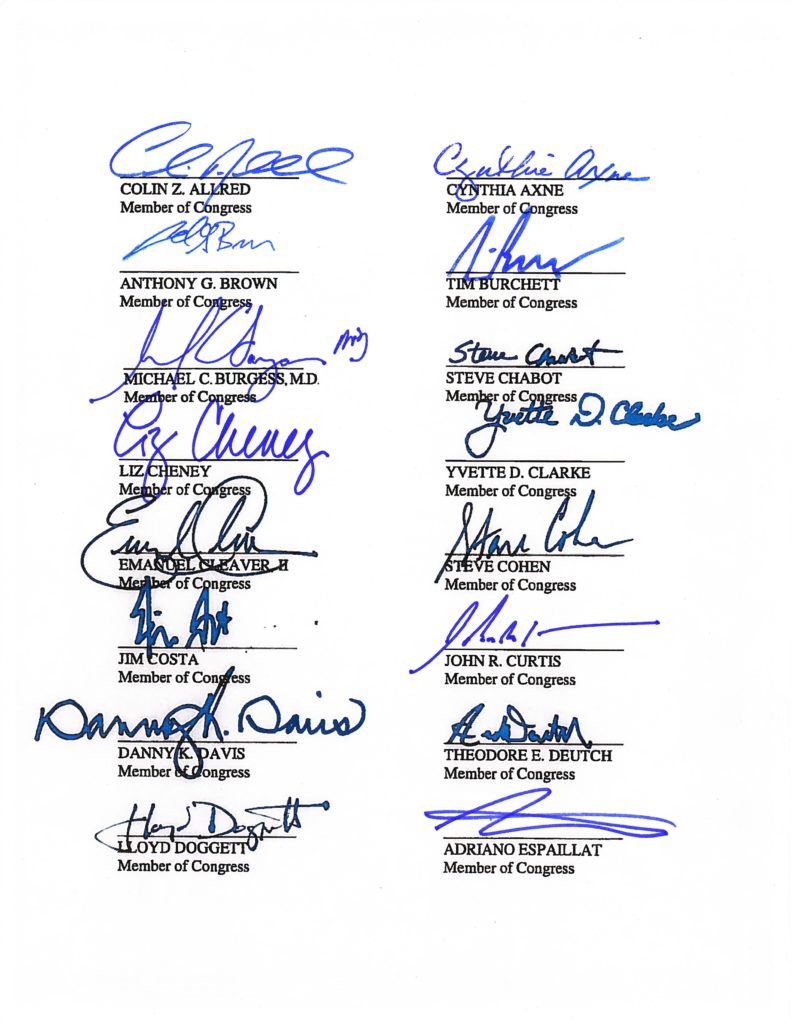 COLIN Z. ALLRED
Member of Congress
Cynthia Axne
CYNTHIA AXNE
Member of Congress
ANTHONY G. BROWN
Member of Congress
TIM BURCHETT
Member of Congress
MICHAEL C. BURGESS, M.D.
Member of Congress
Steve Chabot
STEVE CHABOT
Member of Congress
Liz Cheney
LIZ CHENEY
Member of Congress
Yvette D. Clarke
YVETTE D. CLARKE
Member of Congress
EMANUEL CLEAVER, II
Member of Congress
Steve Cohen
STEVE COHEN
Member of Congress
JIM COSTA
Member of Congress
JOHN R. CURTIS
Member of Congress
Danny K. Davis
DANNY K. DAVIS
Member of Congress
THEODORE E. DEUTCH
Member of Congress
Lloyd Doggett
LLOYD DOGGETT
Member of Congress
ADRIANO ESPAILLAT
Member of Congress